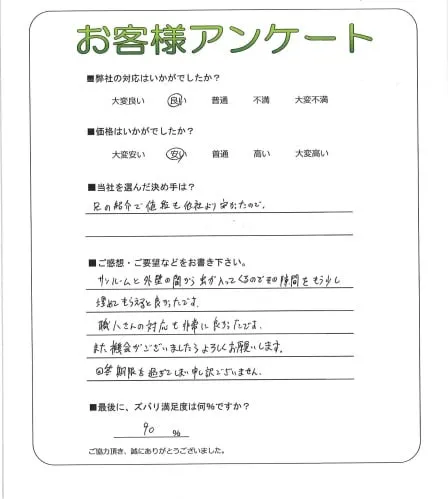 お客様アンケート
■弊社の対応はいかがでしたか？
大変良い 良い 普通 不満 大変不満
■価格はいかがでしたか？
大変安い 安い 普通 高い 大変高い
■当社を選んだ決め手は？
兄の紹介で値段も他社より安かったので。
■ご感想・ご要望などをお書き下さい。
サンルームと外壁の間から虫が入ってくるのでその隙間をもう少し
埋めてもらえると良かったです。
職人さんの対応も非常に良かったです。
また機会がございましたらよろしくお願いします。
回答期限を過ぎてしまい申し訳ございません。
■最後に、ズバリ満足度は何%ですか？
90 %
ご協力頂き、誠にありがとうございました。